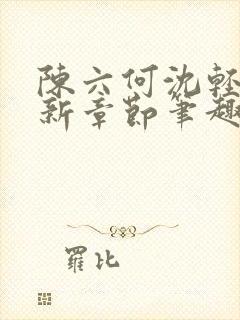 陳六何沈輕
新章節筆趣
羅比